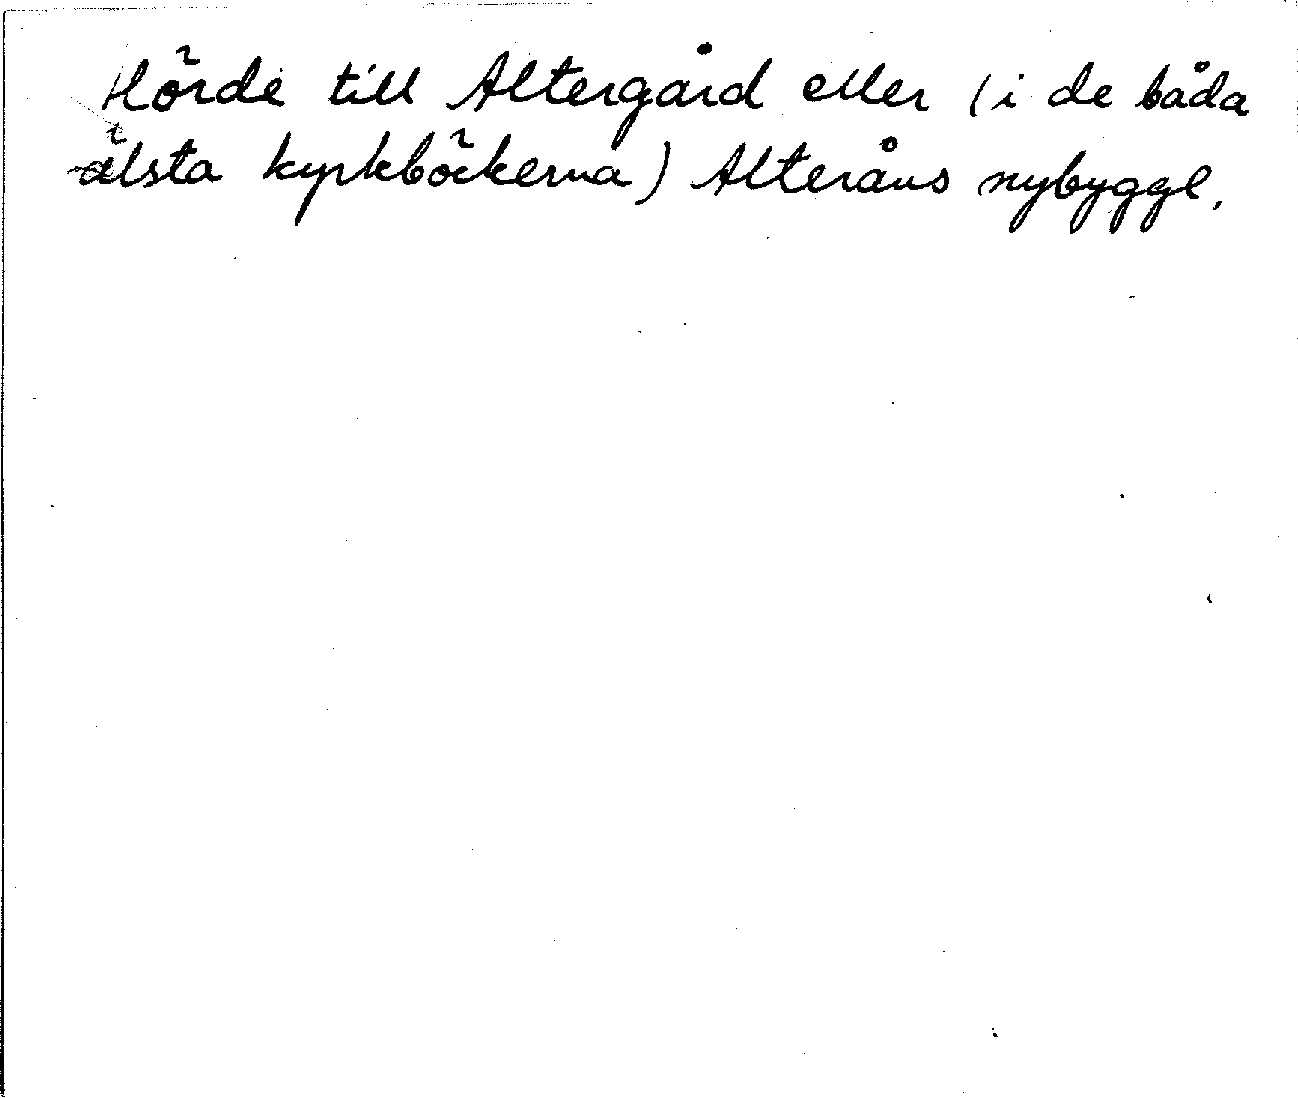 Hörde till Altergård eller (i de båda
älsta kyrkböckerna) Alteråns nybygge.